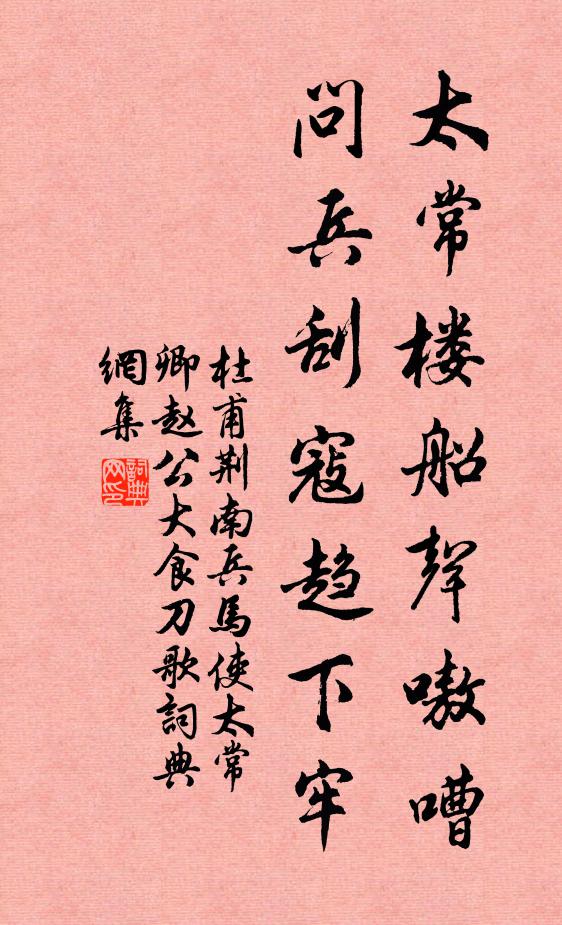 太常楼船聲嗷嘈
問兵刮寇趋下牢
杜甫荆南兵馬使太常
卿赵公大食刀歌詞典
網集
詞典网印